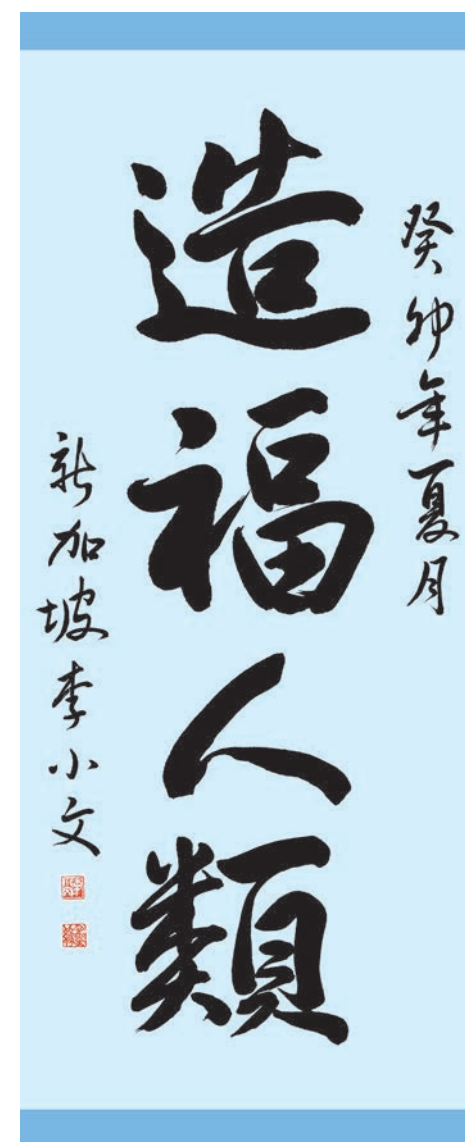 癸卯年夏月
造福人類
新加坡李小文